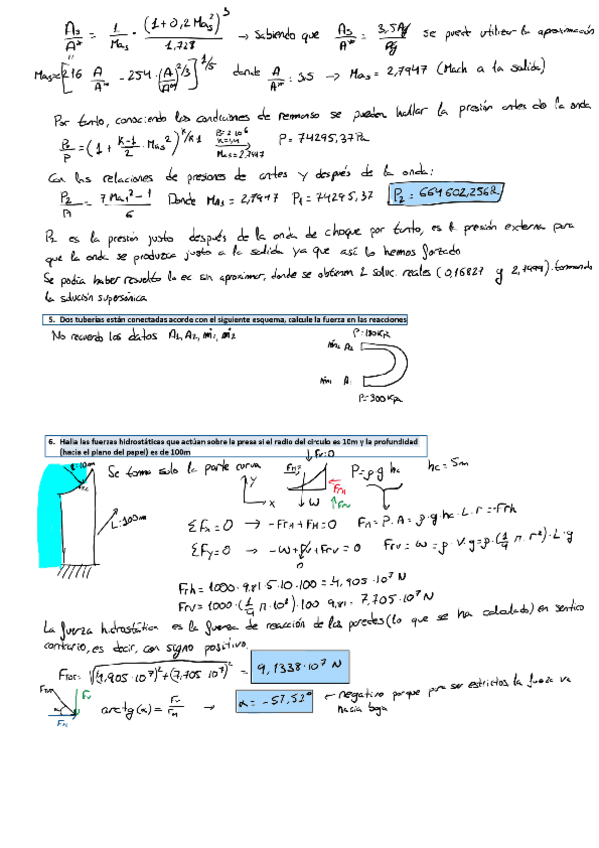 A₃/A* = 1/Ma₃ · (1+0,2Ma₃²)³/1,728 → Sabiendo que A₃/A* = 3,5 se puede utilizar la aproximación
Ma₃ = [216 A/A* - 254·(A/A*)^2/3]^1/5 donde A/A* = 3,5 → Ma₃ = 2,7947 (Mach a la salida)
Por tanto, conociendo las condiciones de remanso se pueden hallar la presión antes de la onda
P₀/P = (1 + K-1/2 · Ma₃²)^K/K-1 P₀=2·10⁶ K=1,4 Ma₃=2,7947 P = 74295,37 Pa
Con las relaciones de presiones de antes y después de la onda:
P₂/P₁ = 7Ma₁²-1/6 Donde Ma₃ = 2,7947 P₁ = 74295,37 P₂ = 664602,256 Pa
P₂ es la presión justo después de la onda de choque por tanto, es la presión externa para
que la onda se produzca justo a la salida ya que así lo hemos forzado
Se podía haber resuelto la ec sin aproximar, donde se obtienen 2 soluc. reales (0,16827 y 2,7999) tomando
la solución supersónica
5. Dos tuberías están conectadas acorde con el siguiente esquema, calcule la fuerza en las reacciones
No recuerdo los datos A₁, A₂, ṁ₁, ṁ₂
ṁ₂ A₂
ṁ₁ A₁
P=300 Kpa
6. Halla las fuerzas hidrostáticas que actúan sobre la presa si el radio del circulo es 10m y la profundidad
(hacia el plano del papel) es de 100m
r=10m Se toma solo la parte curva y x Fv=0 FH W FrH Frv P=ρ·g·hc hc=5m
L=100m
ΣFx=0 → -FrH+FH=0 FH=P·A=ρ·g·hc·L·r=-Frh
ΣFy=0 → -W+Fv+Frv=0 Frv=W=ρ·V·g=ρ·(1/4 π·r²)·L·g
0
Frh = 1000·9,81·5·10·100 = 4,905·10⁷ N
Frv = 1000·(1/4 π·10²)·100·9,81 = 7,705·10⁷ N
La fuerza hidrostática es la fuerza de reacción de las paredes (lo que se ha calculado) en sentido
contrario, es decir, con signo positivo.
FTOT = √(4,905·10⁷)²+(7,705·10⁷)² = 9,1338·10⁷ N
arctg(α) = Fv/FH → α = -57,52° ← negativo porque para ser estrictos la fuerza va
hacia bajo